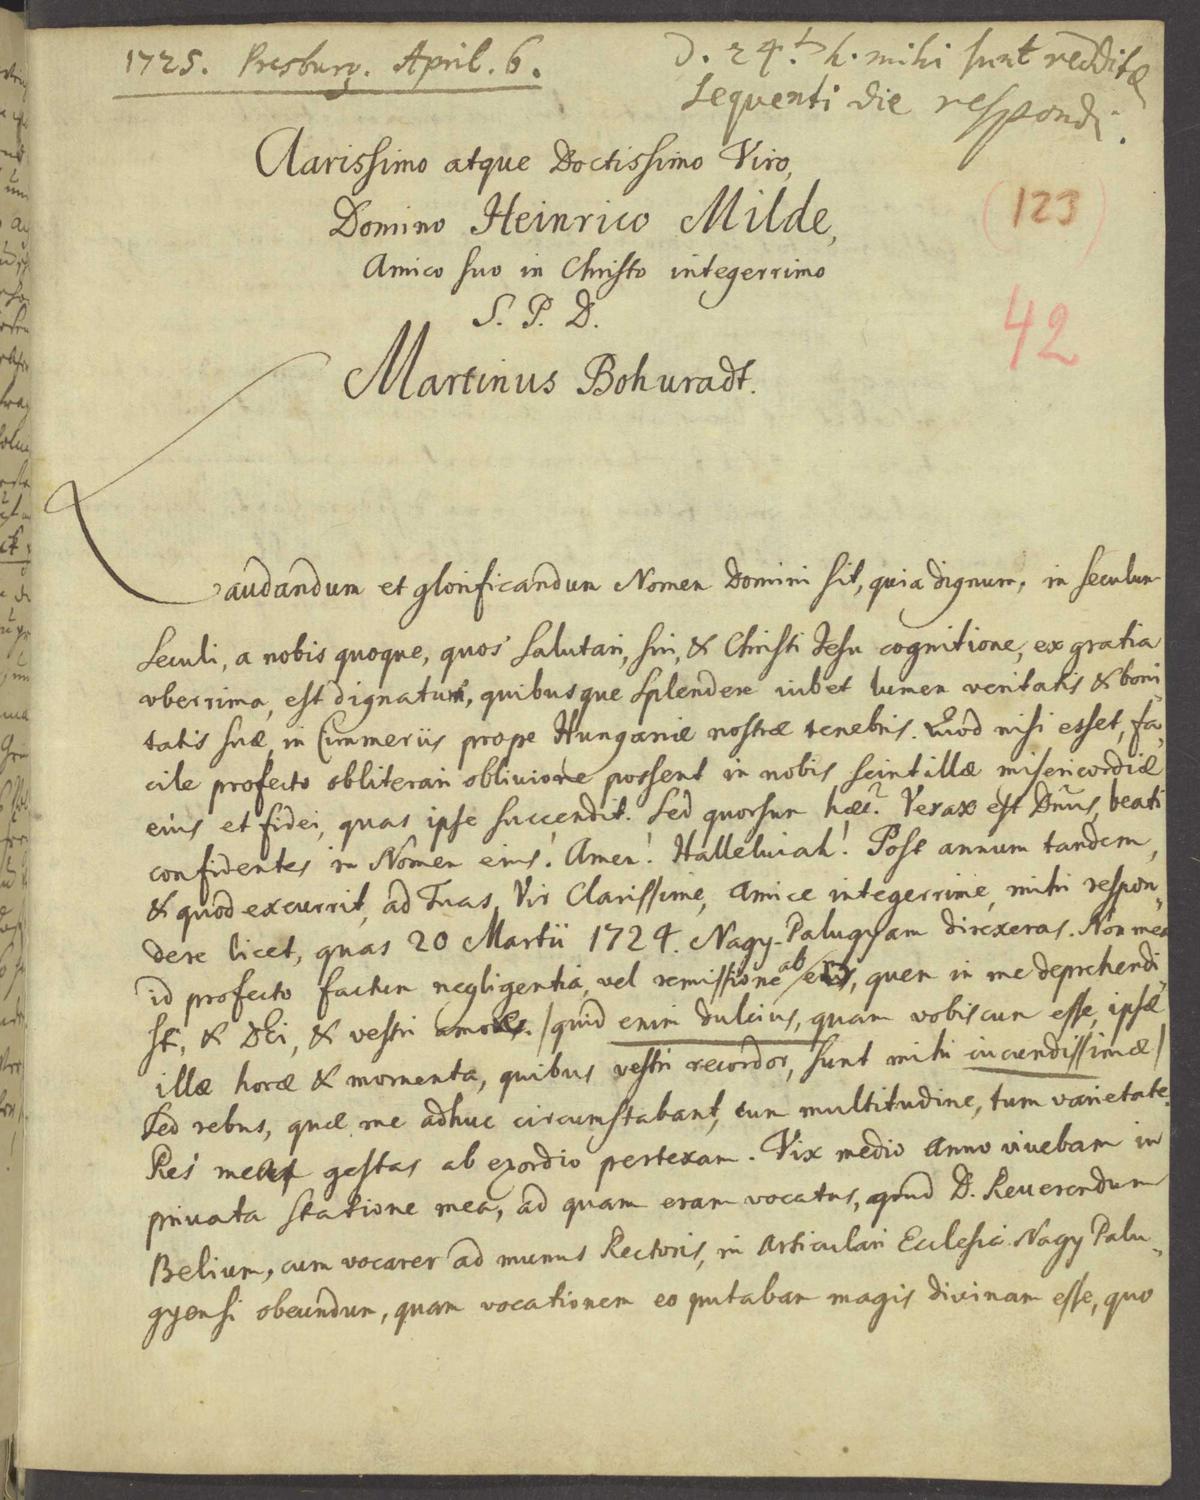 1725. Presburg. April. 6.
D. 24. h. mihi sunt redditæ
sequenti die respondi.
Clarissimo atque Doctissimo Viro,
Domino Heinrico Milde,
Amico suo in Christo integerrimo
S. P. D.
Martinus Bohuradt.
(123)
42
Laudandum et glorificandum Nomen Domini sit, quia dignum, in seculum
seculi, a nobis quoque, quos salutari, sui, & Christi Jesu cognitione, ex gratia
vberrima, est dignatum, quibusque splendere iubet lumen veritatis & boni-
tatis suæ, in Cimmeriis prope Hungariæ nostræ tenebris. Quod nisi esset, fa-
cile profecto obliterari obliuione possent in nobis scintillæ misericordiæ
eius et fidei, quas ipse succendit. Sed quorsum hæc? Verax est Dn̄us, beati
confidentes in Nomen eius! Amen! Halleluiah! Post annum tandem,
& quod excurrit, ad Tuas, Vir Clarissime, Amice integerrime, mihi respon-
dere licet, quas 20 Martii 1724. Nagy-Palugyam direxeras. Non mea
id profecto factum negligentia, vel remissione ab eo, quem in me deprehendi-
sti, & DEi, & vestri amore. /quid enim dulcius, quam vobiscum esse, ipsæ
illæ horæ & momenta, quibus vestri recordor, sunt mihi iucundissimæ/
Sed rebus, quæ me adhuc circumstabant, cum multitudine, tum varietate.
Res meas gestas ab exordio pertexam. Vix medio anno viuebam in
priuata statione mea, ad quam eram vocatus, apud D. Reuerendum
Belium, cum vocarer ad munus Rectoris, in Articulari Ecclesia Nagy Palu-
gyensi obeundum, quam vocationem eo putabam magis divinam esse, quo